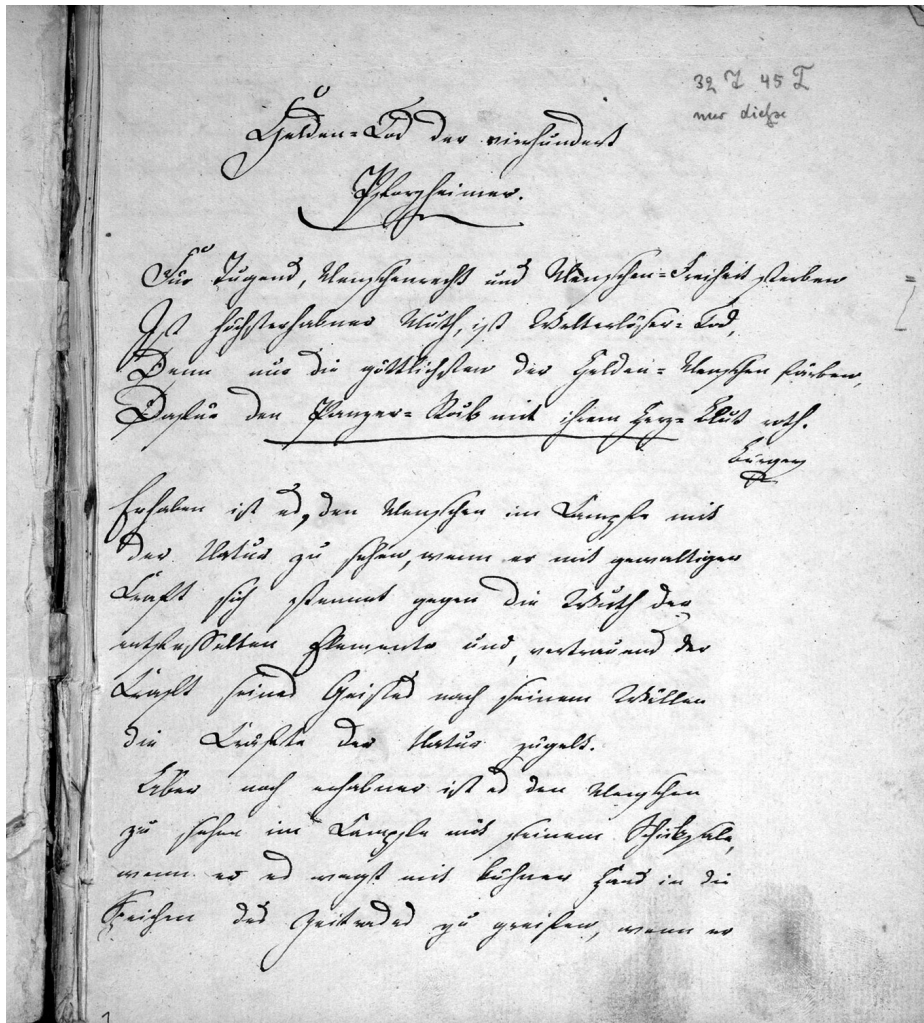 32 Z 45 Z
Helden-Tod der vierhundert
Pforzheimer.
Für Tugend, Menschenrecht und Menschen-Freiheit sterben
Ist höchsterhabner Muth, ist Welterlöser-Tod,
Denn nur die göttlichsten der Helden-Menschen färben,
Dafür den Panzer-Rock mit ihrem Herz-Blut roth.
Bürger
Erhaben ist es, den Menschen im Kampfe mit
der Natur zu sehen, wenn er mit gewaltiger
Kraft sich stemmt gegen die Wuth der
entfesselten Elemente und, vertrauend der
Kraft seines Geistes nach seinem Willen
die Kräfte der Natur zügelt.
Aber noch erhabner ist es den Menschen
zu sehen im Kampfe mit seinem Schicksale,
wenn er es wagt mit kühner Hand in die
Speichen des Zeitrades zu greifen, wenn er